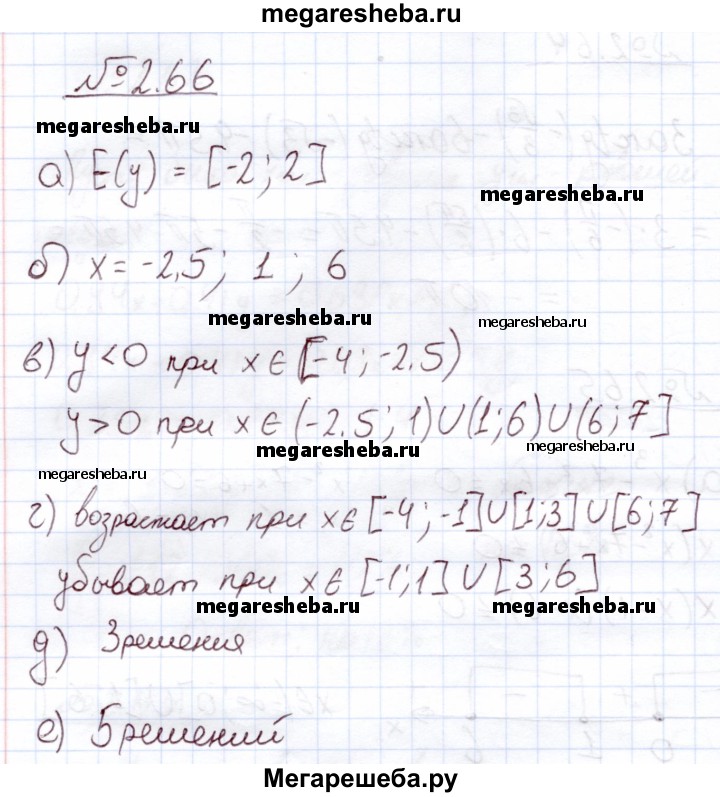 megaresheba.ru
№2.66
megaresheba.ru
а) E(y) = [-2; 2]
megaresheba.ru
б) x = -2,5; 1; 6
megaresheba.ru
megaresheba.ru
в) y < 0 при x ∈ [-4; -2.5)
y > 0 при x ∈ (-2.5; 1) ∪ (1; 6) ∪ (6; 7]
megaresheba.ru
megaresheba.ru
megaresheba.ru
г) возрастает при x ∈ [-4; -1] ∪ [1; 3] ∪ [6; 7]
убывает при x ∈ [-1; 1] ∪ [3; 6]
megaresheba.ru
megaresheba.ru
д) 3 решения
е) 5 решений
Мегарешеба.ру